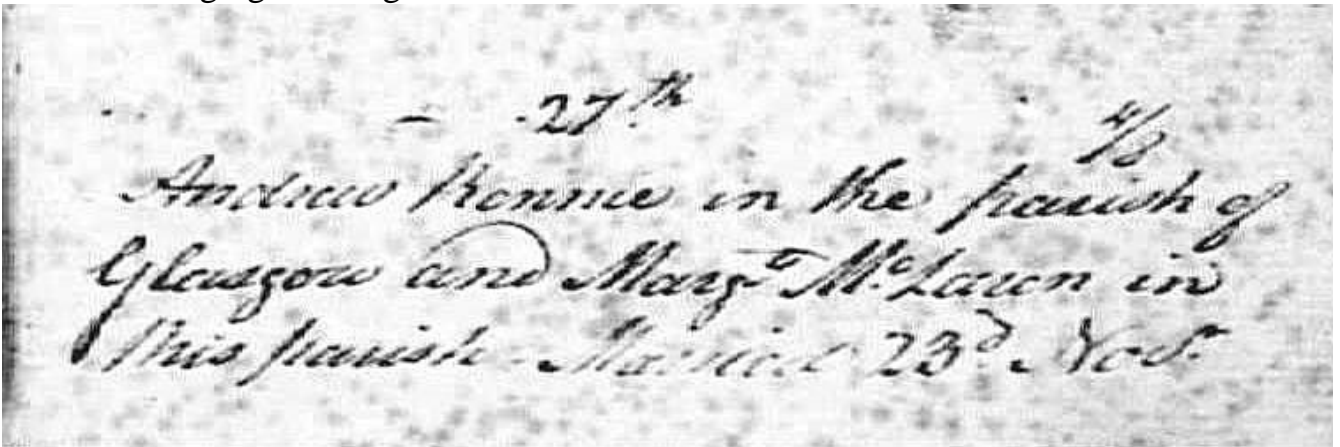 27th
4/8
Andrew Rennie in the parish of
Glasgow and Margt McLaren in
this parish Married 23d Novr